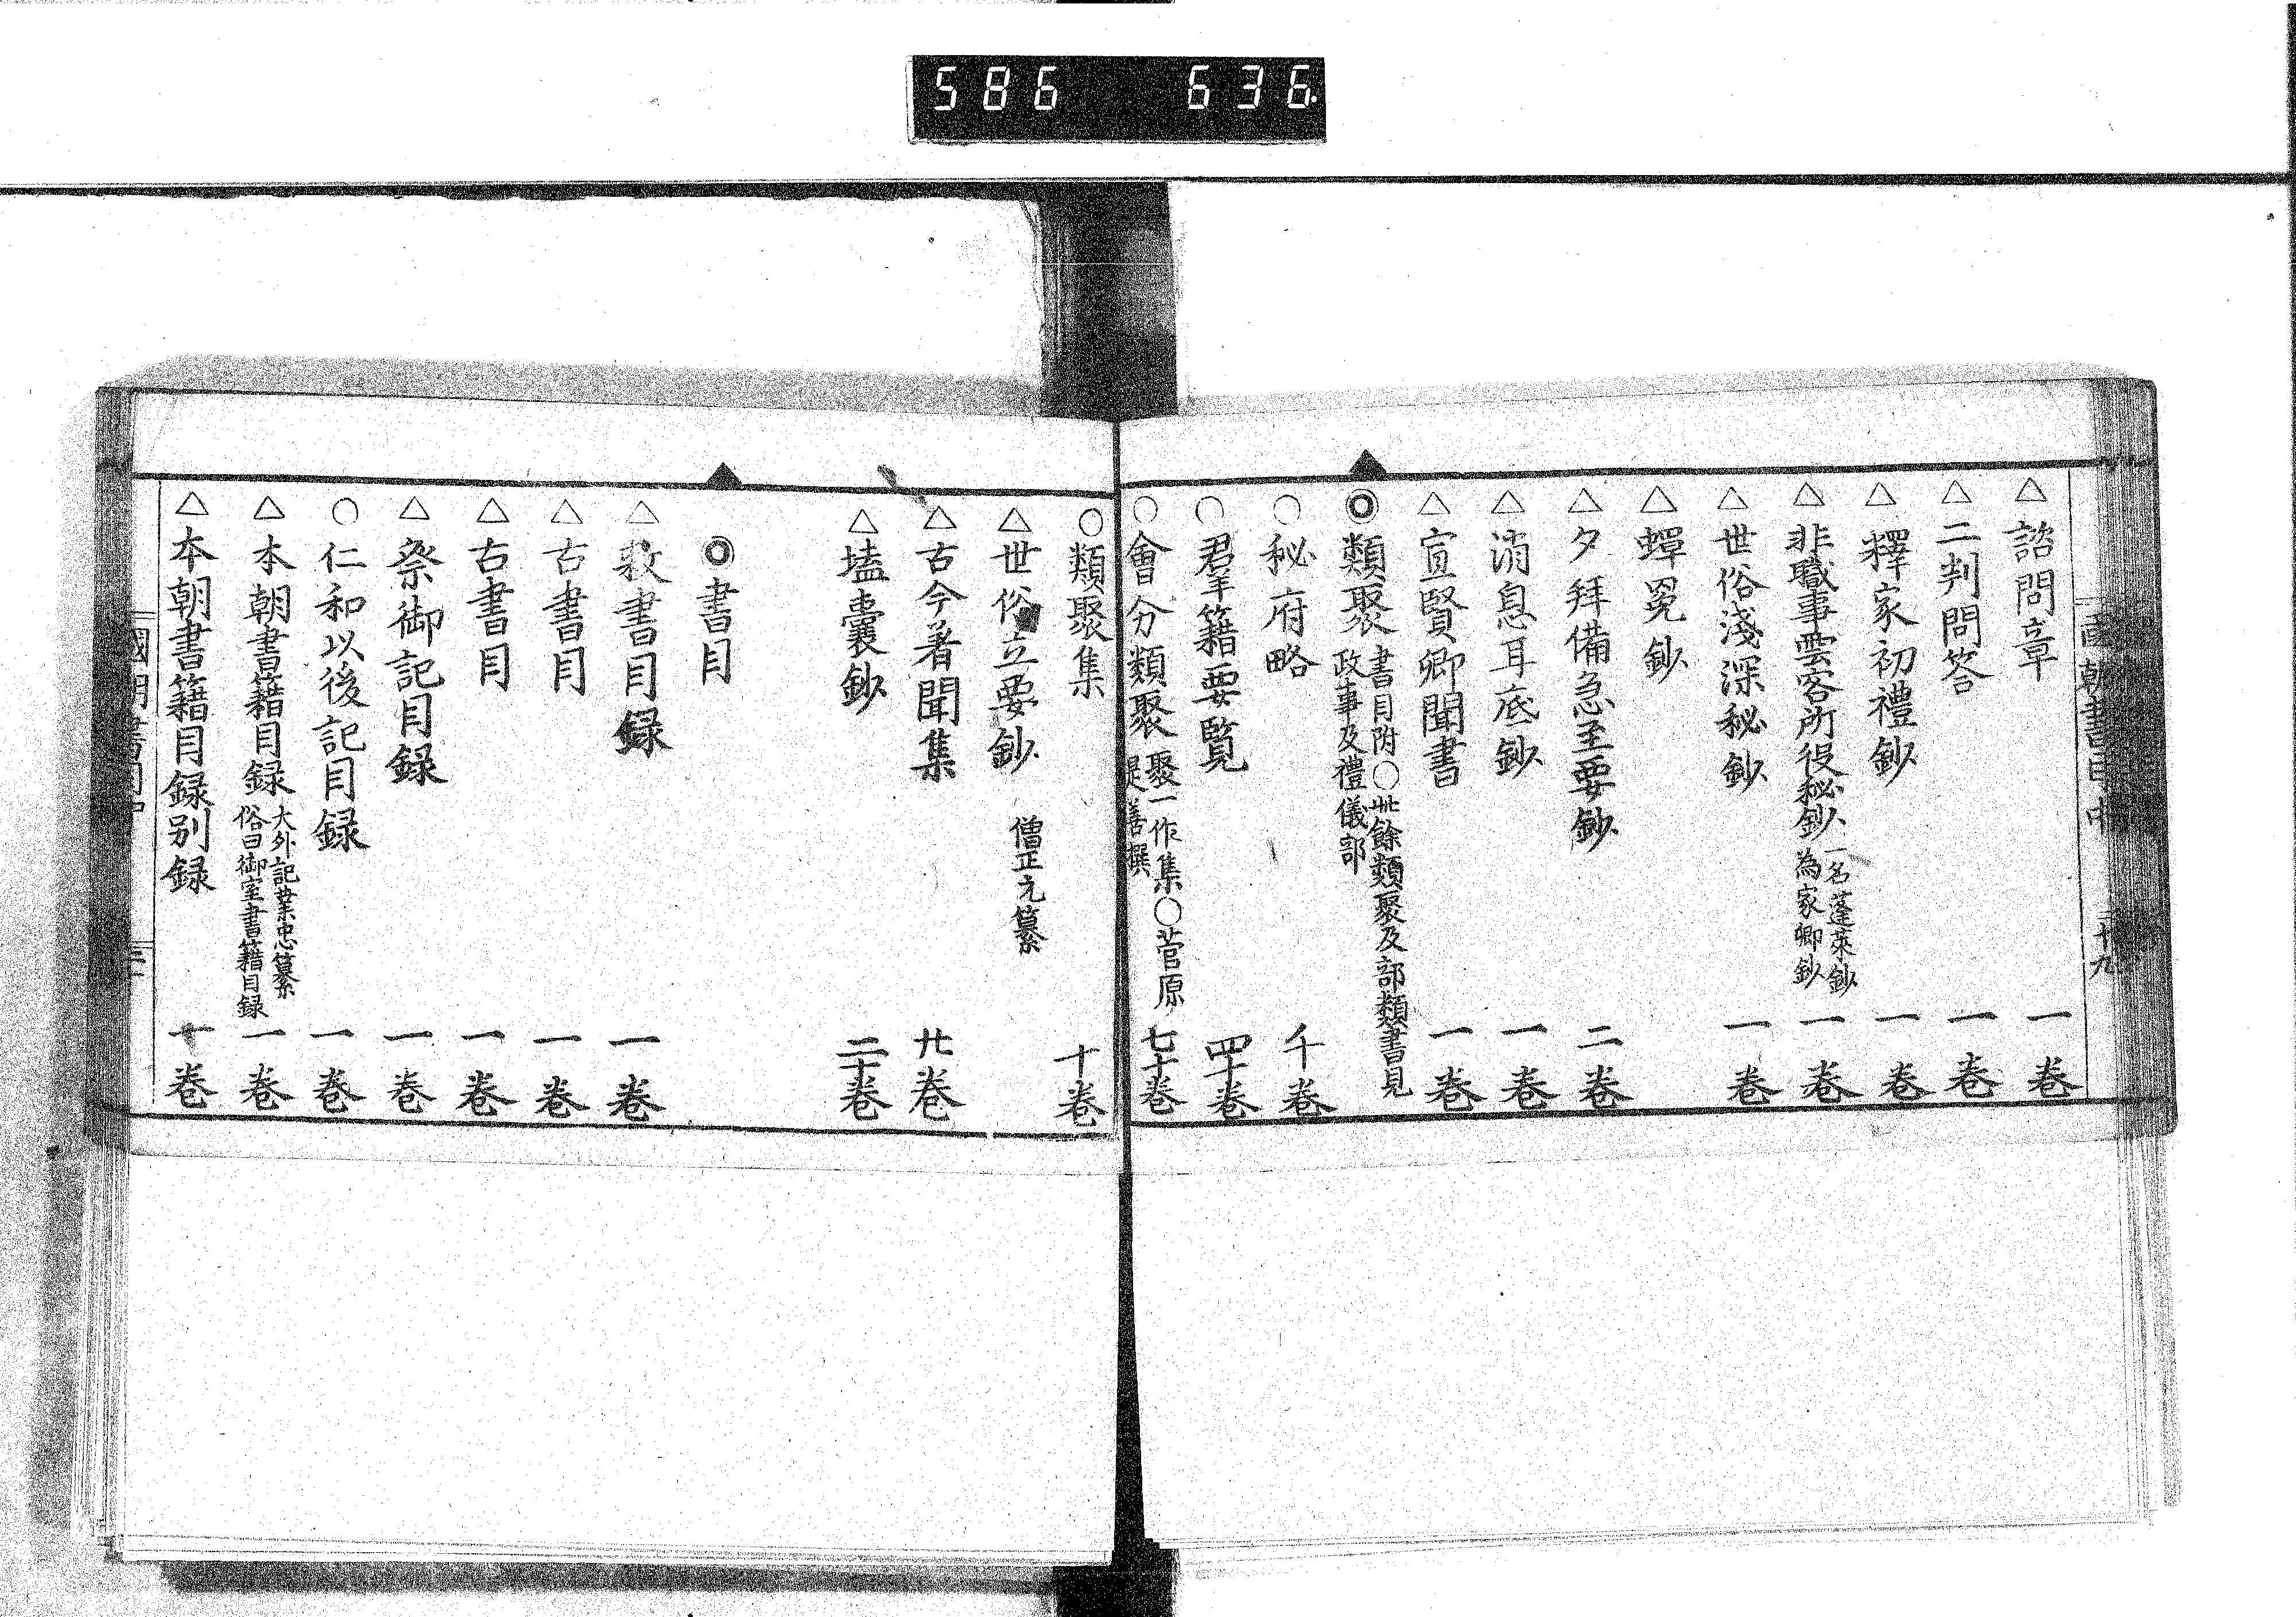 586 636
國朝書目中 二十九
△諮問章 一卷
△二判問答 一卷
△釋家初禮鈔 一卷
△非職事雲客所役秘鈔 一名蓬萊鈔 為家卿鈔 一卷
△世俗淺深秘鈔 一卷
△蟬冕鈔
△夕拜備急至要鈔 二卷
△消息耳底鈔 一卷
△宣賢卿聞書 一卷
◎類聚 書目附○此餘類聚及部類書見 政事及禮儀部
○秘府略 千卷
○羣籍要覽 四十卷
○會分類聚 聚一作集○菅原 是善撰 七十卷
○類聚集 十卷
△世俗立要鈔 僧正元纂
△古今著聞集 廿卷
△壒囊鈔 二十卷
◎書目
△敕書目録 一卷
△古書目 一卷
△古書目 一卷
△祭御記目録 一卷
○仁和以後記目録 一卷
△本朝書籍目録 大外記業忠纂 俗曰御室書籍目録 一卷
△本朝書籍目録別録 十卷
國朝書目中